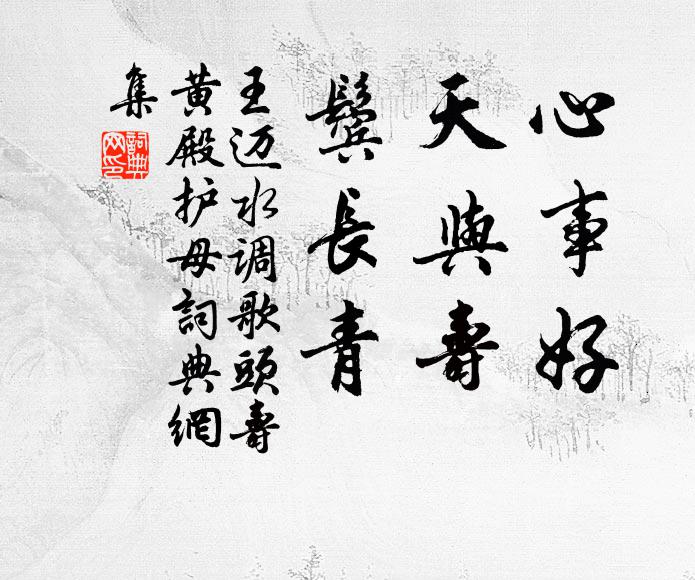 心事好
天與壽
鬢長青
王迈水调歌頭壽
黄殿护母詞典網
集
詞典
网印